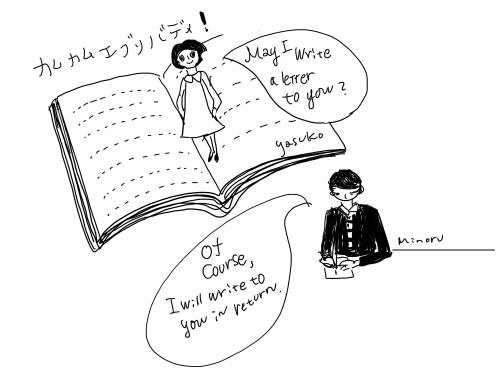 カムカムエヴリバディ!
May I write
a letter
to you?
yasuko
Of
Course,
I will write to
you in return.
Minoru